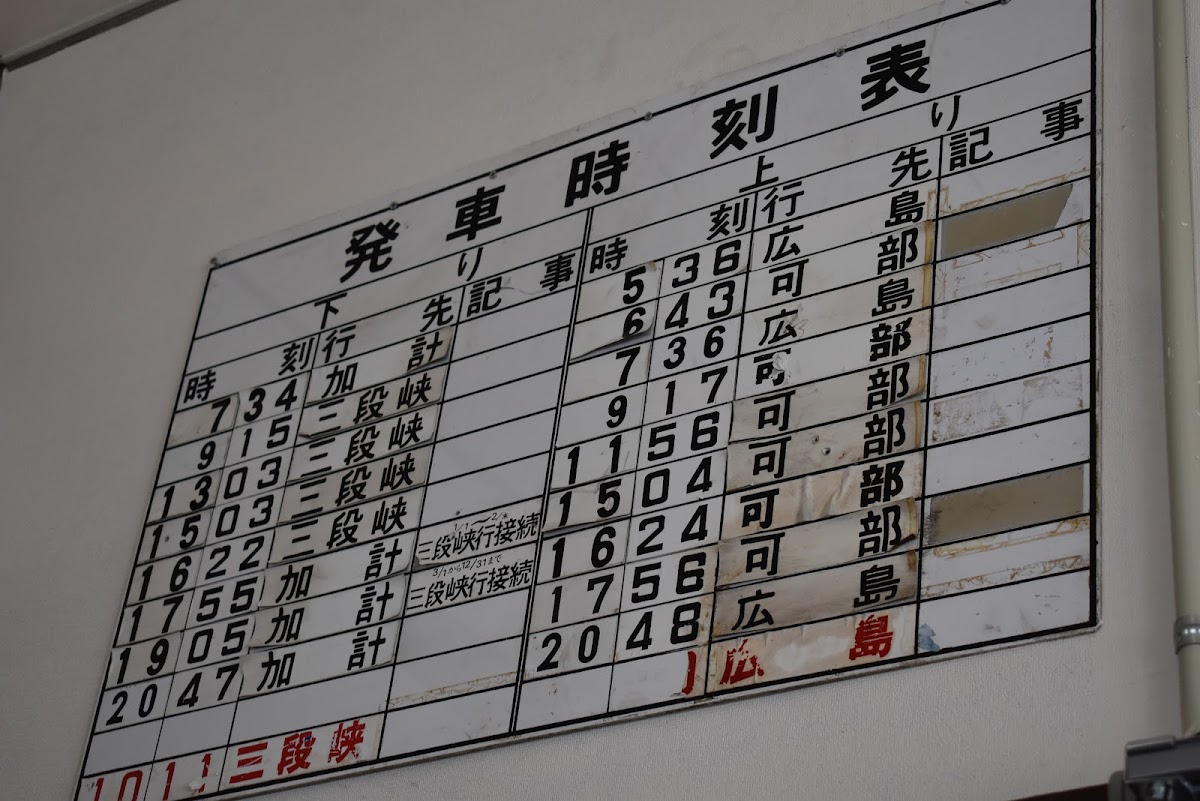 発車時刻表
下り
時刻 行先 記事
7 34 加計
9 15 三段峡
13 03 三段峡
15 03 三段峡
16 22 三段峡
17 55 加計 1/1〜2/末 三段峡行接続
19 05 加計 3/1から12/31まで 三段峡行接続
20 47 加計
10 11 三段峡
上り
時刻 行先 記事
5 36 広島
6 43 可部
7 36 広島
9 17 可部
11 56 可部
15 04 可部
16 24 可部
17 56 可部
20 48 広島
広島